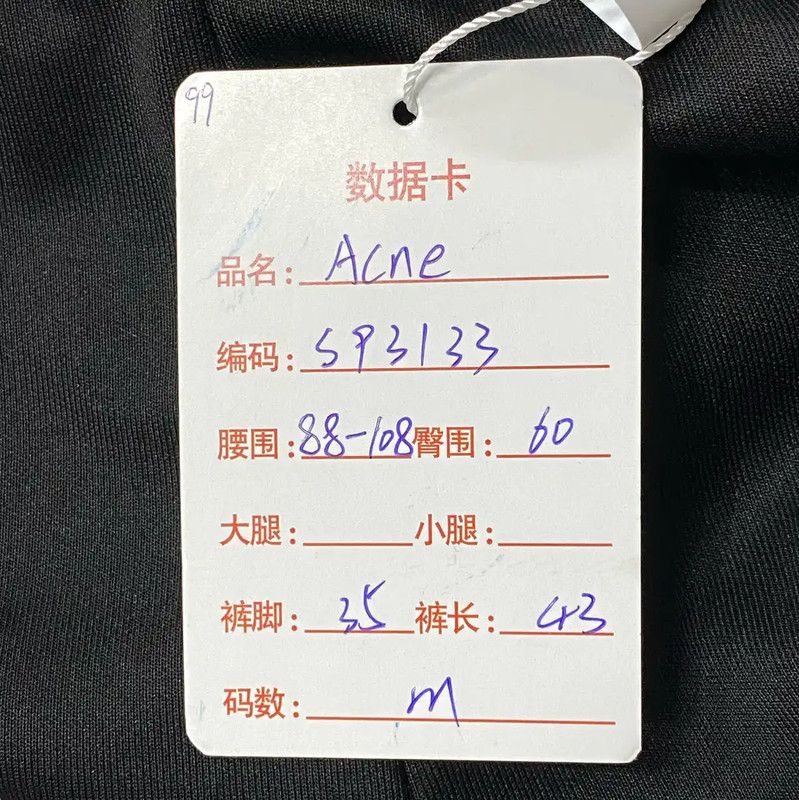 99
数据卡
品名: Acne
编码: SP3133
腰围: 88-108 臀围: 60
大腿: 小腿:
裤脚: 35 裤长: 43
码数: m